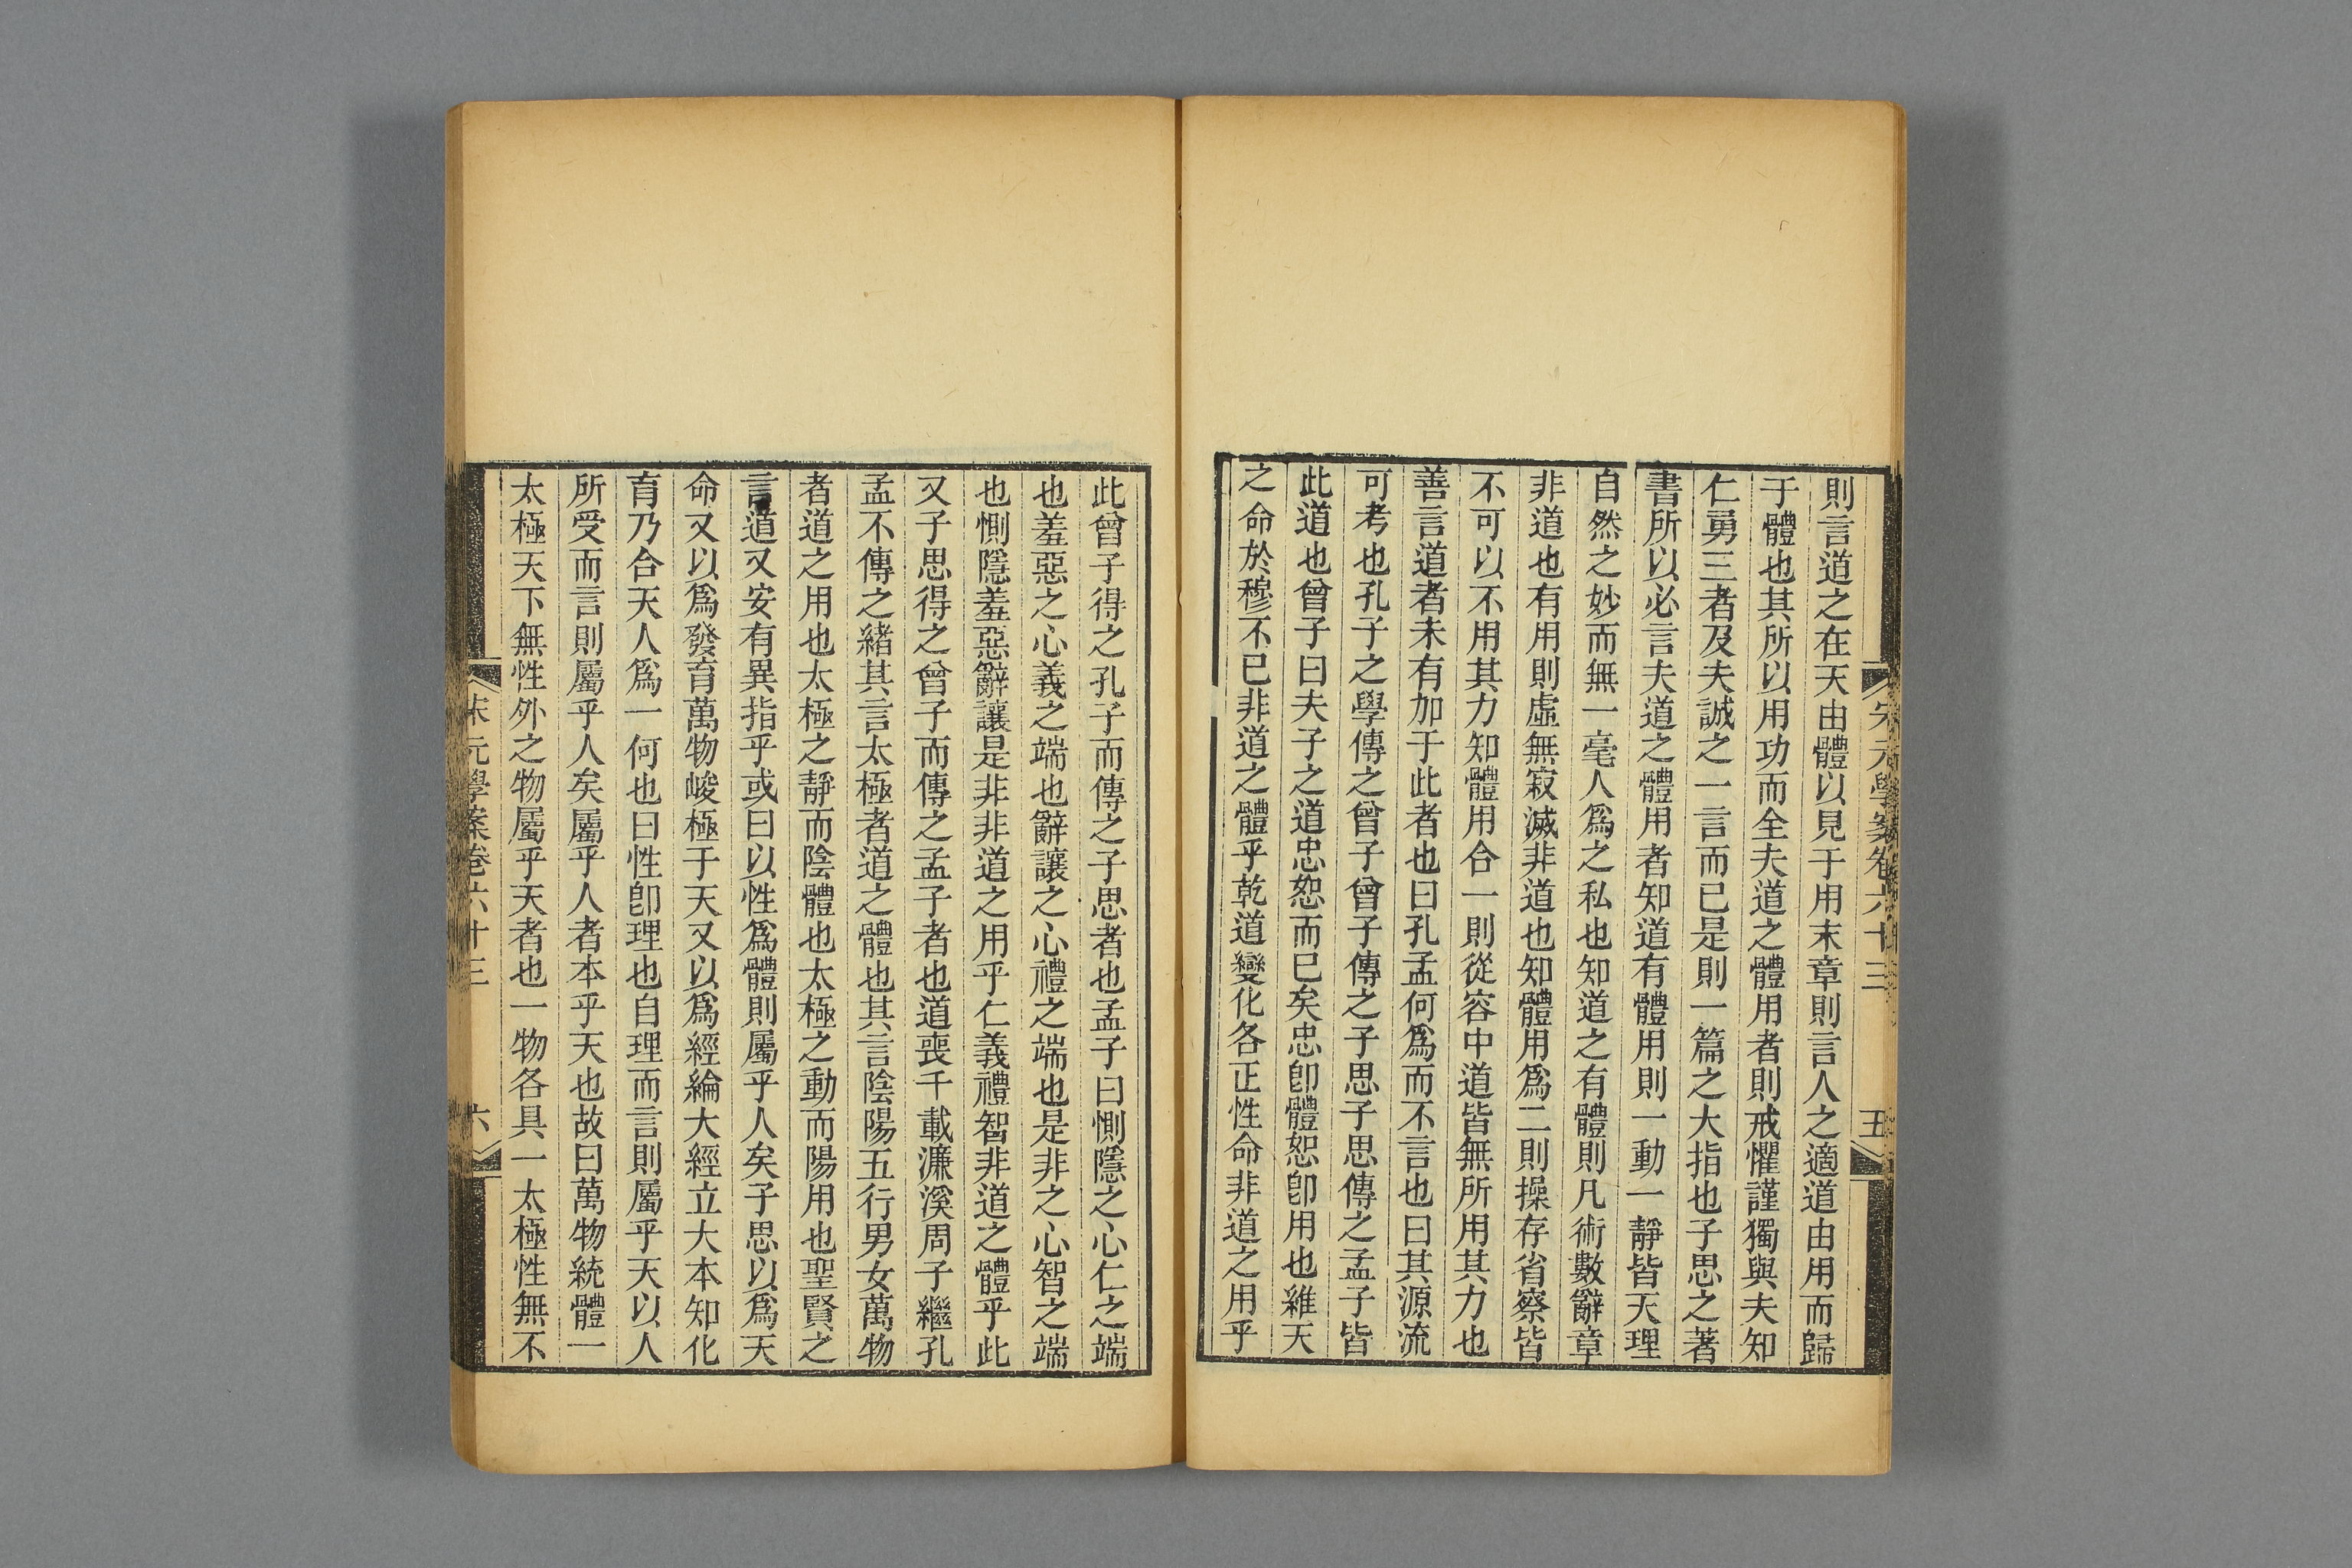 宋元學案卷六十三
五
則言道之在天由體以見于用末章則言人之適道由用而歸
于體也其所以用功而全夫道之體用者則戒懼謹獨與夫知
仁勇三者及夫誠之一言而已是則一篇之大指也子思之著
書所以必言夫道之體用者知道有體用則一動一靜皆天理
自然之妙而無一毫人爲之私也知道之有體則凡術數辭章
非道也有用則虛無寂滅非道也知體用爲二則操存省察皆
不可以不用其力知體用合一則從容中道皆無所用其力也
善言道者未有加于此者也曰孔孟何爲而不言也曰其源流
可考也孔子之學傳之曾子曾子傳之子思子思傳之孟子皆
此道也曾子曰夫子之道忠恕而已矣忠卽體恕卽用也維天
之命於穆不已非道之體乎乾道變化各正性命非道之用乎
此曾子得之孔子而傳之子思者也孟子曰惻隱之心仁之端
也羞惡之心義之端也辭讓之心禮之端也是非之心智之端
也惻隱羞惡辭讓是非非道之用乎仁義禮智非道之體乎此
又子思得之曾子而傳之孟子者也道喪千載濂溪周子繼孔
孟不傳之緒其言太極者道之體也其言陰陽五行男女萬物
者道之用也太極之靜而陰體也太極之動而陽用也聖賢之
言道又安有異指乎或曰以性爲體則屬乎人矣子思以爲天
命又以爲發育萬物峻極于天又以爲經綸大經立大本知化
育乃合天人爲一何也曰性卽理也自理而言則屬乎天以人
所受而言則屬乎人矣屬乎人者本乎天也故曰萬物統體一
太極天下無性外之物屬乎天者也一物各具一太極性無不
宋元學案卷六十三
六